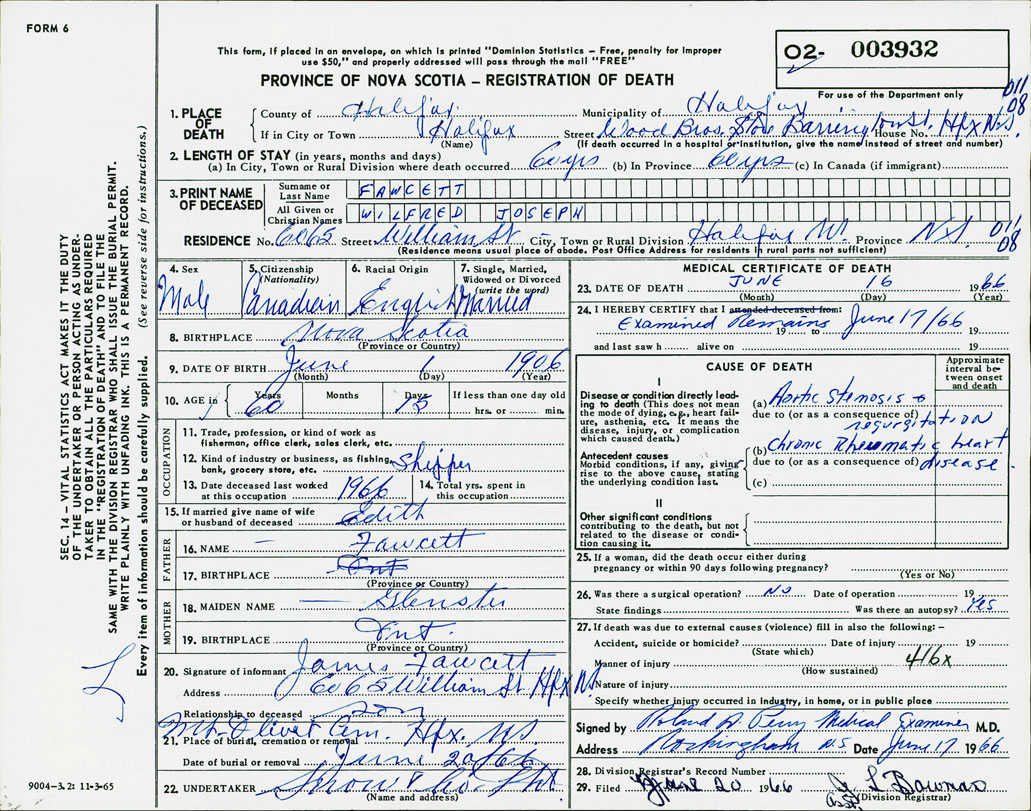 FORM 6
This form, if placed in an envelope, on which is printed "Dominion Statistics – Free, penalty for improper
use $50," and properly addressed will pass through the mail "FREE"
PROVINCE OF NOVA SCOTIA – REGISTRATION OF DEATH
02- 003932
For use of the Department only
011
08
1. PLACE OF DEATH
County of Halifax Municipality of Halifax
If in City or Town Halifax Street Wood Bros. Store Barrington St. Hfx N.S. House No.
(Name) (If death occurred in a hospital or institution, give the name instead of street and number)
2. LENGTH OF STAY (in years, months and days)
(a) In City, Town or Rural Division where death occurred 60 yrs (b) In Province 60 yrs (c) In Canada (if immigrant)
3. PRINT NAME OF DECEASED
Surname or Last Name FAWCETT
All Given or Christian Names WILFRED JOSEPH
RESIDENCE No. 6065 Street William St City, Town or Rural Division Halifax Province N.S.
011
08
(Residence means usual place of abode. Post Office Address for residents in rural parts not sufficient)
4. Sex Male
5. Citizenship (Nationality) Canadian
6. Racial Origin English
7. Single, Married, Widowed or Divorced (write the word) Married
8. BIRTHPLACE Nova Scotia
(Province or Country)
9. DATE OF BIRTH June 1 1906
(Month) (Day) (Year)
10. AGE in Years 60 Months Days 15 If less than one day old
hrs. or min.
OCCUPATION
11. Trade, profession, or kind of work as
fisherman, office clerk, sales clerk, etc.
12. Kind of industry or business, as fishing,
bank, grocery store, etc. Shipper
13. Date deceased last worked
at this occupation 1966
14. Total yrs. spent in
this occupation
15. If married give name of wife
or husband of deceased Edith
FATHER
16. NAME — Fawcett
17. BIRTHPLACE
(Province or Country)
MOTHER
18. MAIDEN NAME — Glenster
19. BIRTHPLACE
(Province or Country)
20. Signature of informant James Fawcett
Address 6065 William St. Hfx NS
Relationship to deceased son
Mt. Olivet Cem. Hfx. NS
21. Place of burial, cremation or removal
Date of burial or removal June 20/66
22. UNDERTAKER Snow & Co. Ltd.
(Name and address)
MEDICAL CERTIFICATE OF DEATH
23. DATE OF DEATH JUNE 16 1966
(Month) (Day) (Year)
24. I HEREBY CERTIFY that I attended deceased from:
Examined Remains June 17/66 19 to 19
and last saw h alive on 19
CAUSE OF DEATH
Approximate interval between onset and death
I
Disease or condition directly leading to death (This does not mean
the mode of dying, e.g., heart failure, asthenia, etc. It means the
disease, injury, or complication
which caused death.)
(a) Aortic stenosis +
due to (or as a consequence of) regurgitation
Antecedent causes
Morbid conditions, if any, giving
rise to the above cause, stating
the underlying condition last.
(b) Chronic Rheumatic heart
due to (or as a consequence of) disease.
(c)
II
Other significant conditions
contributing to the death, but not
related to the disease or condition causing it.
25. If a woman, did the death occur either during
pregnancy or within 90 days following pregnancy?
(Yes or No)
26. Was there a surgical operation? NO Date of operation 19
State findings Was there an autopsy? YES
27. If death was due to external causes (violence) fill in also the following: –
Accident, suicide or homicide? Date of injury 19
(State which)
416X
Manner of injury
(How sustained)
Nature of injury
Specify whether injury occurred in industry, in home, or in public place
Signed by Roland A. Perry Medical Examiner M.D.
Address Rockingham N.S Date June 17 1966
28. Division Registrar's Record Number
29. Filed June 20 1966 L Bowman
(Division Registrar)
SEC. 14 – VITAL STATISTICS ACT MAKES IT THE DUTY
OF THE UNDERTAKER OR PERSON ACTING AS UNDER-
TAKER TO OBTAIN ALL THE PARTICULARS REQUIRED
IN THE "REGISTRATION OF DEATH" AND TO FILE THE
SAME WITH THE DIVISION REGISTRAR WHO SHALL ISSUE THE BURIAL PERMIT.
WRITE PLAINLY WITH UNFADING INK. THIS IS A PERMANENT RECORD.
Every item of information should be carefully supplied. (See reverse side for instructions.)
9004-3.2: 11-3-65